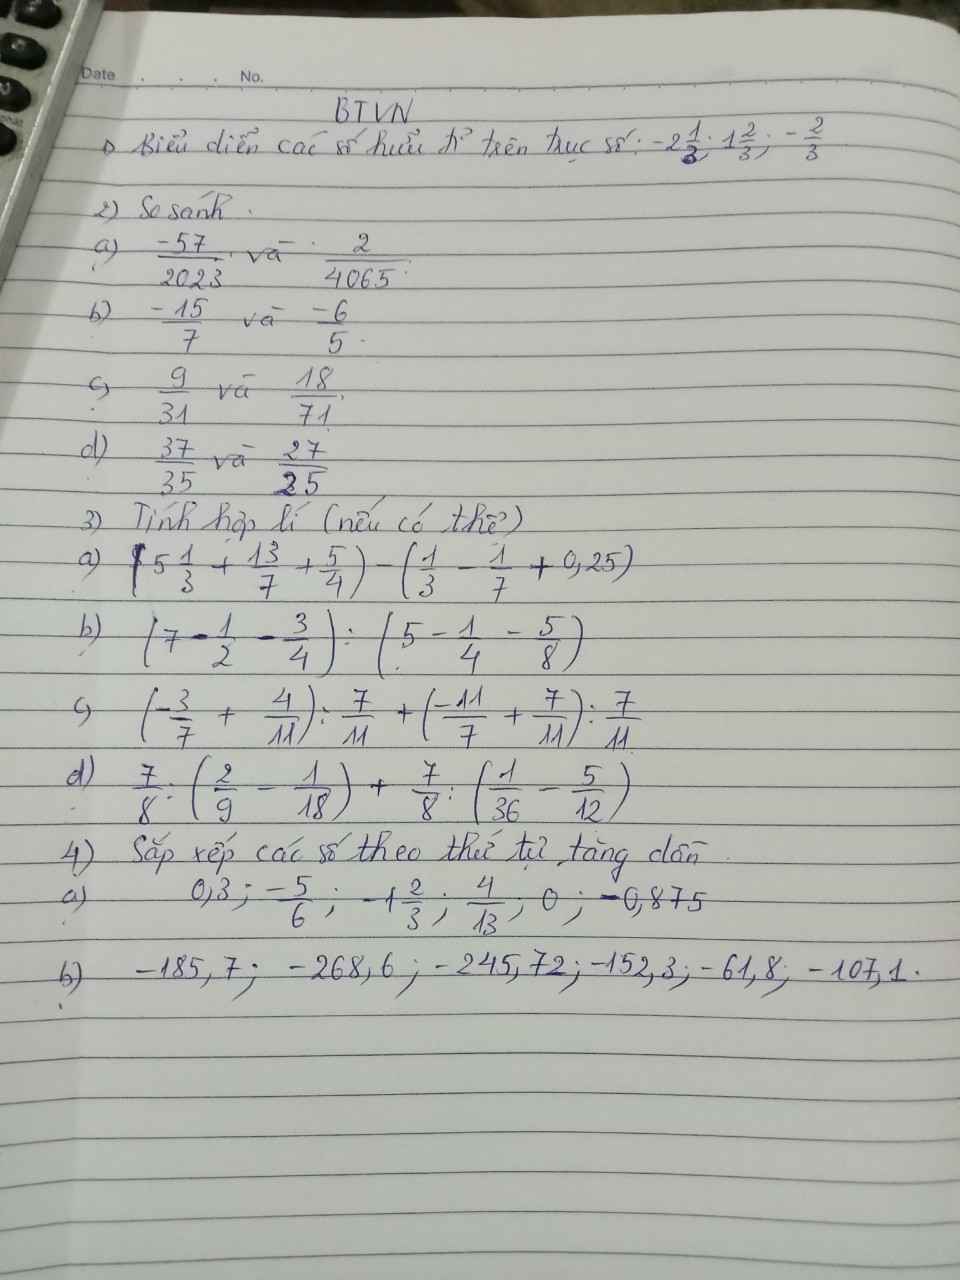 Date . . . No.
BTVN
1) Biểu diễn các số hữu tỉ trên trục số: -2 1/3; 1 2/3; -2/3
2) So sánh.
a) -57/2023 và 2/4065
b) -15/7 và -6/5
c) 9/31 và 18/71
d) 37/35 và 27/25
3) Tính hợp lí (nếu có thể)
a) (5 1/3 + 13/7 + 5/4) - (1/3 - 1/7 + 0,25)
b) (7 - 1/2 - 3/4) : (5 - 1/4 - 5/8)
c) (-3/7 + 4/11) : 7/11 + (-11/7 + 7/11) : 7/11
d) 7/8 : (2/9 - 1/18) + 7/8 : (1/36 - 5/12)
4) Sắp xếp các số theo thứ tự tăng dần.
a) 0,3; -5/6; -1 2/3; 4/13; 0; -0,875
b) -185,7; -268,6; -245,72; -152,3; -61,8; -107,1.